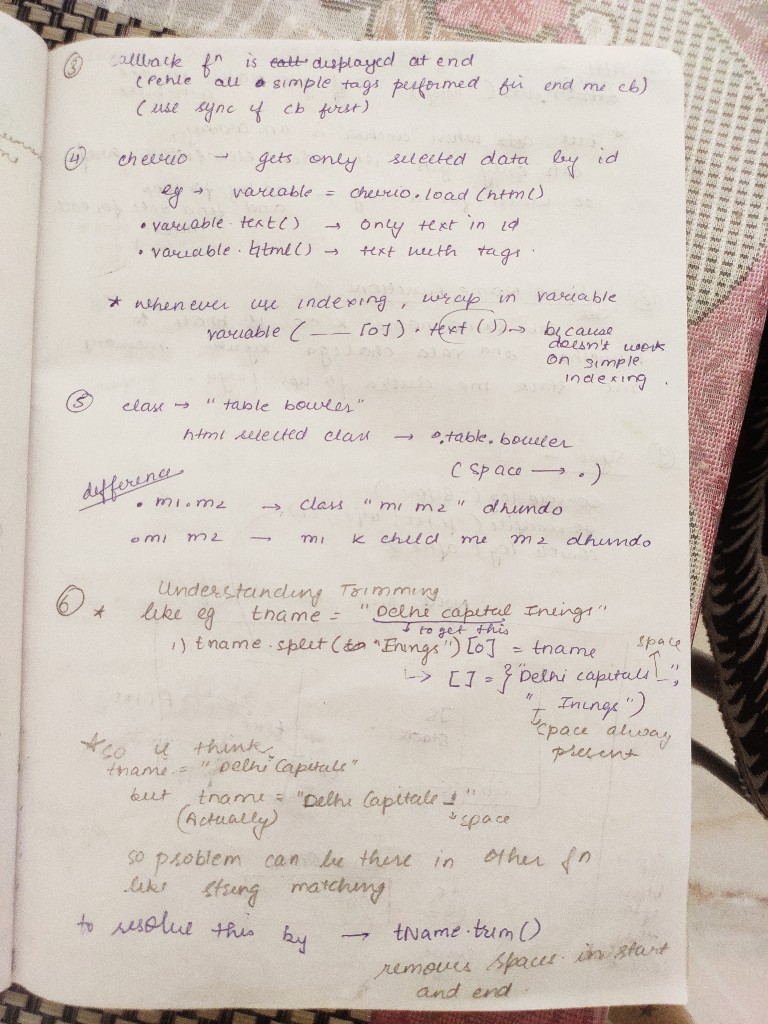 ③ callback fn is displayed at end
(Pehle all simple tags performed fir end me cb)
(use sync if cb first)
④ cheerio → gets only selected data by id
eg → variable = cheerio.load(html)
• variable.text() → only text in id
• variable.html() → text with tags.
* whenever use indexing, wrap in variable
variable ( __ [0]).text()) → because
doesn't work
on simple
indexing.
⑤ class → "table bowler"
html selected class → .table.bowler
(space → .)
difference
• m1.m2 → class "m1 m2" dhundo
• m1 m2 → m1 k child me m2 dhundo
Understanding Trimming
⑥ * like eg tname = "Delhi capital Inings"
↓ to get this
1) tname.split("Inings")[0] = tname
space
↳ [] = } "Delhi capitals ",
" Inings")
space alway
present
*so u think
tname = "Delhi Capitals"
but tname = "Delhi Capitals "
(Actually) ↓space
so problem can be there in other fn
like string matching
to resolve this by → tName.trim()
removes spaces in start
and end.